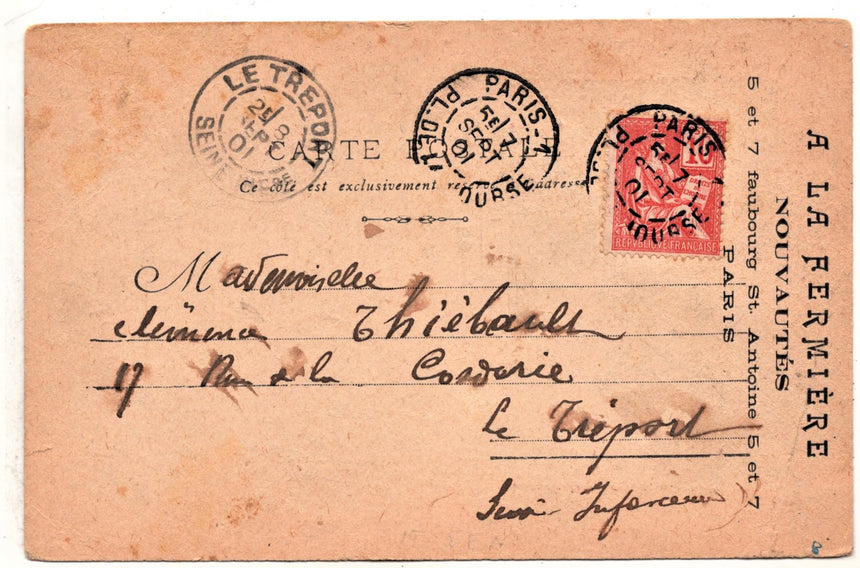 LE TREPORT
2E
8
SEPT
01
SEINE
PARIS-1
5E
7
SEPT
01
PL. DE LA BOURSE
PARIS
5E
7
01
BOURSE
10
RÉPUBLIQUE FRANÇAISE
CARTE POSTALE
Ce côté est exclusivement réservé à l'adresse
Mademoiselle
Clémence Thiébault
17 Rue de la Corderie
Le Tréport
Seine Inférieure
A LA FERMIÈRE
NOUVAUTÉS
5 et 7 faubourg St. Antoine 5 et 7
PARIS